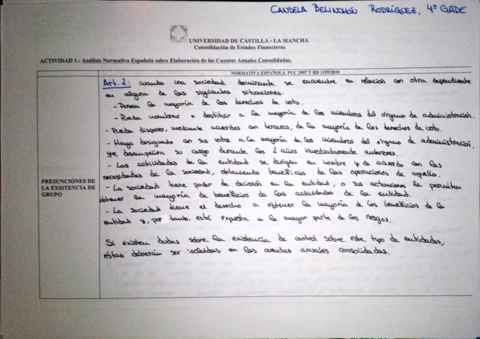 CANDELA BELINCHÓN RODRÍGUEZ, 4º GADE
UNIVERSIDAD DE CASTILLA - LA MANCHA
Consolidación de Estados Financieros
ACTIVIDAD 1.: Análisis Normativa Española sobre Elaboración de las Cuentas Anuales Consolidadas.
NORMATIVA ESPAÑOLA. PGC 2007 Y RD 1159/2010
PRESUNCIONES DE
LA EXISTENCIA DE
GRUPO
Art. 2: cuando una sociedad dominante se encuentre en relación con otra dependiente
en alguna de las siguientes situaciones:
- Posea la mayoría de los derechos de voto.
- Pueda nombrar o destituir a la mayoría de los miembros del órgano de administración.
- Pueda disponer, mediante acuerdos con terceros, de la mayoría de los derechos de voto.
- Haya designado con sus votos a la mayoría de los miembros del órgano de administración,
que desempeñen su cargo durante los 2 años inmediatamente anteriores
- Las actividades de la entidad se dirigen en nombre y de acuerdo con las
necesidades de la sociedad, obteniendo beneficios de las operaciones de aquella.
- La sociedad tiene poder de decisión en la entidad, o sus actuaciones le permiten
obtener la mayoría de beneficios de las actividades de la entidad.
- La sociedad tiene el derecho a obtener la mayoría de los beneficios de la
entidad y, por tanto, esté expuesta a la mayor parte de los riesgos.
Si existen dudas sobre la existencia de control sobre este tipo de entidades,
éstas deberán ser incluidas en las cuentas anuales consolidadas.